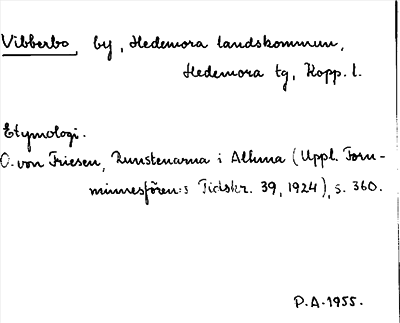 Vibberbo, by, Hedemora landskommun,
Hedemora tg, Kopp. l.
Etymologi.
O. von Friesen, Runstenarna i Altuna (Uppl. Forn-
minnesfören:s Tidskr. 39, 1924), s. 360.
P.A. 1955.